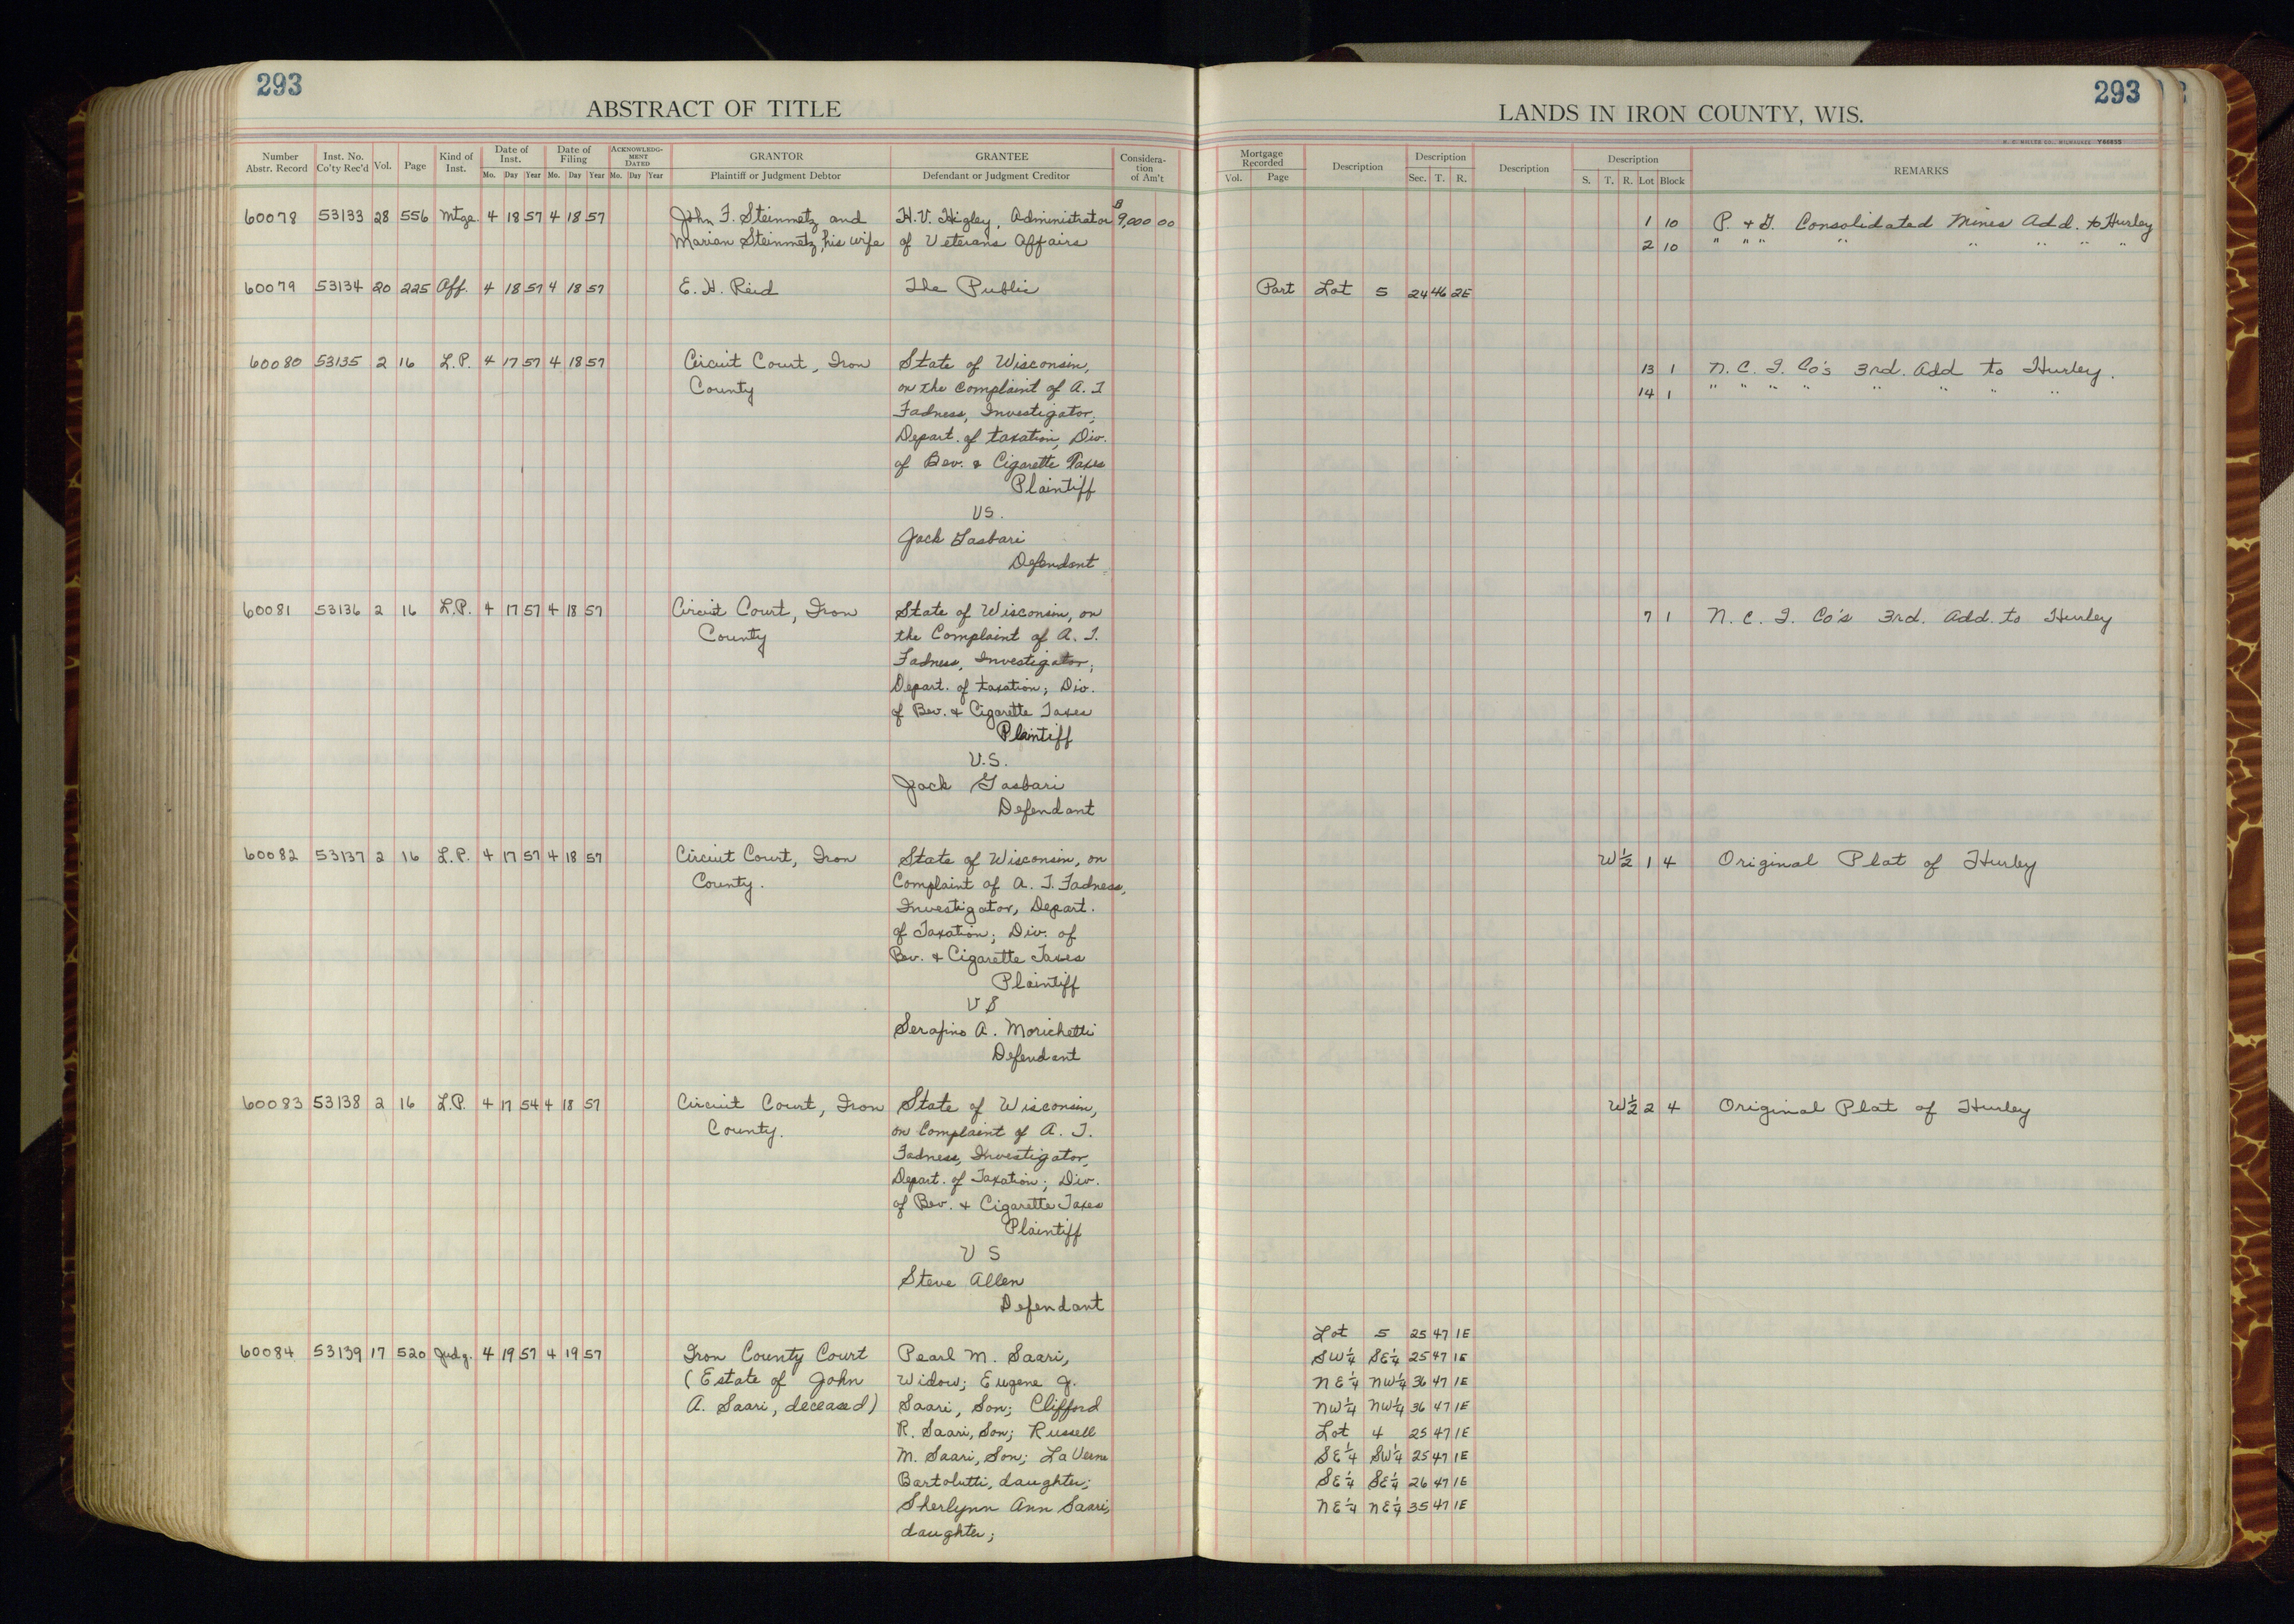 293
ABSTRACT OF TITLE
Number Abstr. Record
Inst. No. Co'ty Rec'd
Vol.
Page
Kind of Inst.
Date of Inst.
Mo. Day Year
Date of Filing
Mo. Day Year
ACKNOWLEDG-MENT DATED
Mo. Day Year
GRANTOR
Plaintiff or Judgment Debtor
GRANTEE
Defendant or Judgment Creditor
Considera-tion of Am't
60078 53133 28 556 Mtge. 4 18 57 4 18 57 John F. Steinmetz and H.V. Higley, Administrator $9,000 00
Marian Steinmetz, his wife of Veterans Affairs
60079 53134 20 225 Aff. 4 18 57 4 18 57 E. H. Reid The Public
60080 53135 2 16 L.P. 4 17 57 4 18 57 Circuit Court, Iron State of Wisconsin,
County on the Complaint of A. T.
Fadness, Investigator,
Depart. of taxation, Div.
of Bev. & Cigarette Taxes
Plaintiff
VS.
Jack Gasbari
Defendant
60081 53136 2 16 L.P. 4 17 57 4 18 57 Circuit Court, Iron State of Wisconsin, on
County the Complaint of A. T.
Fadness, Investigator;
Depart. of taxation; Div.
of Bev. & Cigarette Taxes
Plaintiff
V.S.
Jack Gasbari
Defendant
60082 53137 2 16 L.P. 4 17 57 4 18 57 Circuit Court, Iron State of Wisconsin, on
County. Complaint of A. T. Fadness,
Investigator, Depart.
of Taxation; Div. of
Bev. & Cigarette Taxes
Plaintiff
VS
Serafino A. Morichetti
Defendant
60083 53138 2 16 L.P. 4 17 54 4 18 57 Circuit Court, Iron State of Wisconsin,
County. on Complaint of A. T.
Fadness, Investigator,
Depart. of Taxation; Div.
of Bev. & Cigarette Taxes
Plaintiff
VS
Steve Allen
Defendant
60084 53139 17 520 Judg. 4 19 57 4 19 57 Iron County Court Pearl M. Saari,
(Estate of John Widow; Eugene J.
A. Saari, deceased) Saari, Son; Clifford
R. Saari, Son; Russell
M. Saari, Son; LaVerne
Bartolutti, daughter;
Sherlynn Ann Saari,
daughter;
293
LANDS IN IRON COUNTY, WIS.
Mortgage Recorded
Vol. Page
Description
Description
Sec. T. R.
Description
Description
S. T. R. Lot Block
REMARKS
1 10 P. & G. Consolidated Mines Add. to Hurley
2 10 " " " " " " " "
Part Lot 5 24 46 2E
13 1 N. C. I. Co's 3rd. Add to Hurley.
14 1 " " " " " " " "
7 1 N. C. I. Co's 3rd. Add. to Hurley
W½ 1 4 Original Plat of Hurley
W½ 2 4 Original Plat of Hurley
Lot 5 25 47 1E
SW¼ SE¼ 25 47 1E
NE¼ NW¼ 36 47 1E
NW¼ NW¼ 36 47 1E
Lot 4 25 47 1E
SE¼ SW¼ 25 47 1E
SE¼ SE¼ 26 47 1E
NE¼ NE¼ 35 47 1E